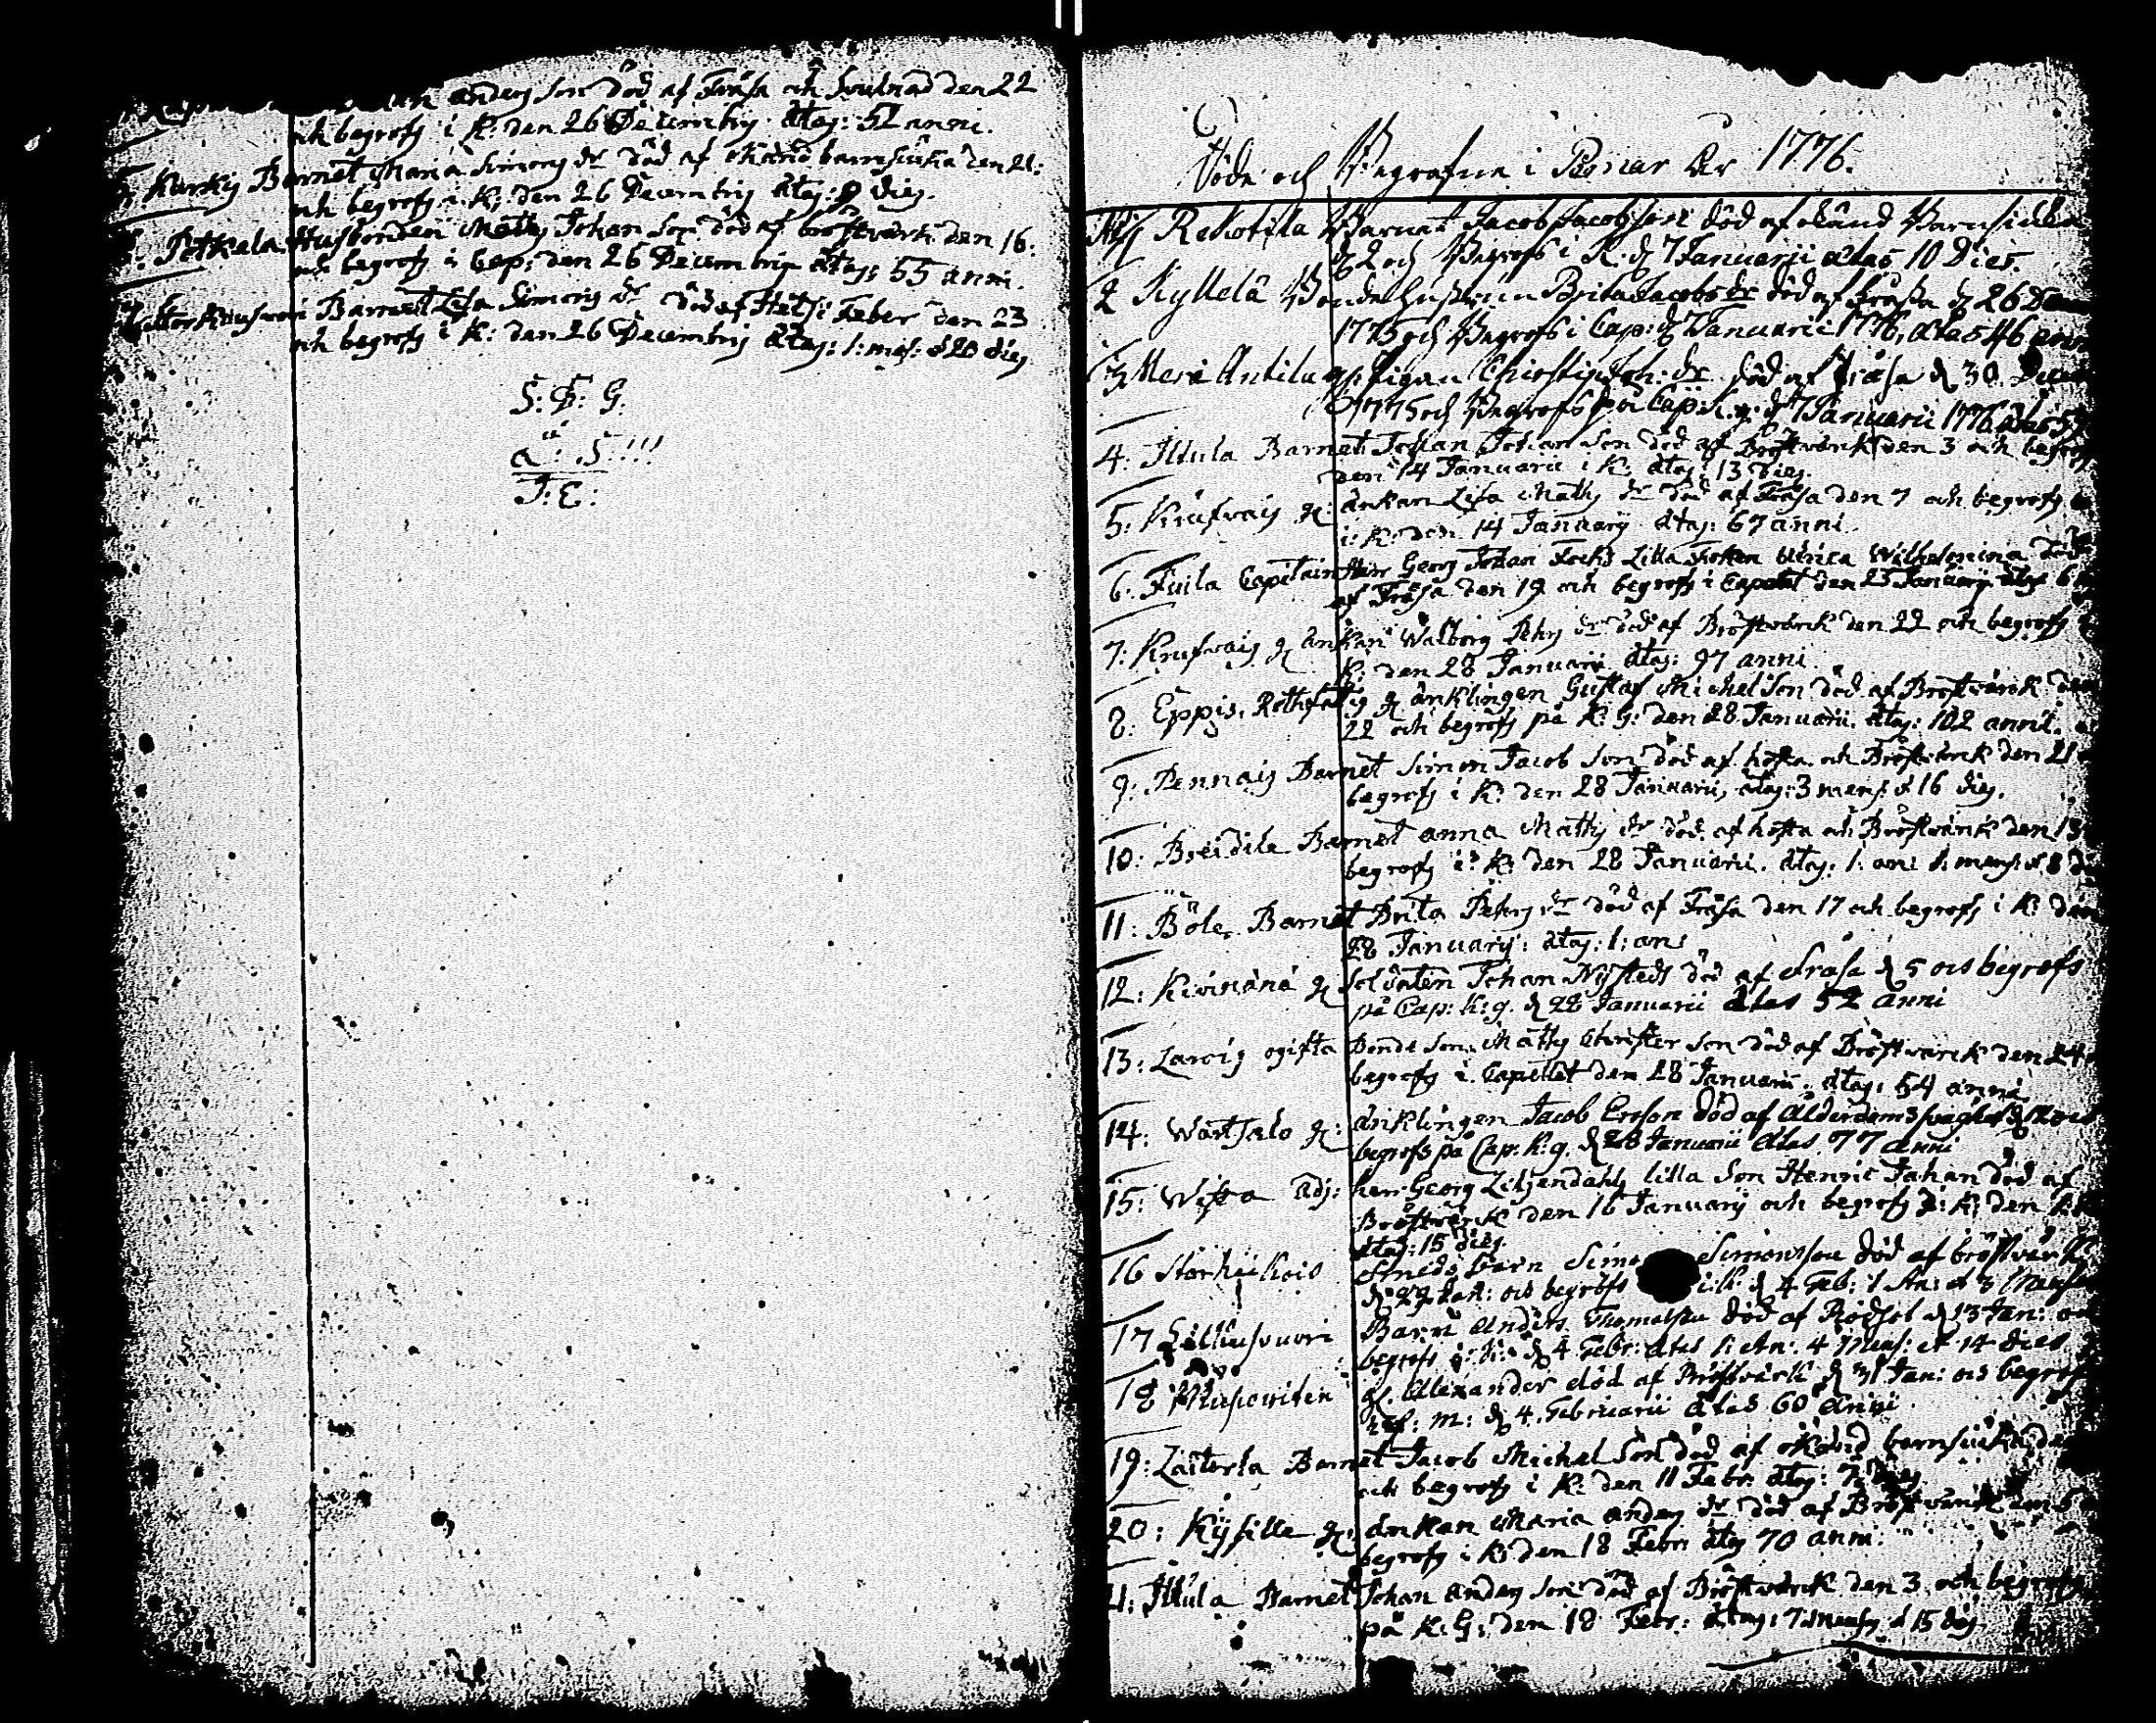 anders Son död af Fråsa och den 22
och begrofs i K: den 26 Decembris ætas: 52 anni.
Kurkis Barnet Maria Simons dr död af okänd barnsiuka den 21:
och begrofs i K: den 26 Decembris ætas: 9 dies.
Potkala Husbonden Matts Johan Son död af bröstvärk den 16:
och begrofs i Cap: den 26 Decembris ætas: 55 anni.
Barnet Lisa Simons dr död af Hetsi Feber den 23
och begrofs i K: den 26 Decembris ætas: 1: mens: & 20 dies
S: D: G:
a: S:!!!
J: E:
Döde och Begrafne i Pomar År 1776.
Rekottila Barnet Jacob Jacobsson död af okänd Barnsiukka
d 2 och Begrofs i K. d 7 Januarii ætas 10 Dies.
2 Kyllelä Bonde Hustrun Brita Jacobs dr död af Fråssa d 26 Decem
1775 och Begrofs i Cap: d 7 Januarii 1776, ætas 46 anni
3 Meri Antila gf: Pigan Christin Joh: dr död af Fråsa d 30 Decem
1775 och Begrofs på Cap: K. g. d 7 Januarii 1776 ætas 57
4: Illula Barnet Johan Johan Son död af Bröstwärk den 3 och begrofs
den 14 Januarii i K: ætas: 13 dies.
5: Krufvais gf: änkan Lisa Matts dr död af Fråsa den 7 och begrofs
i K: den 14 Januarij ætas: 67 anni.
6: Fuila Capitain Herr Georg Johan Focks Lilla Froken Ulrica Wilhelmina död
af Fråsa den 19 och begrofs i Capellet den 25 Januarij ætas 6
7: Krufvais gf änkan Walborg Pehrs dr död af Bröstwärk den 22 och begrofs
K: den 28 Januarii ætas: 97 anni
8: Eppis. Rothfattig gf änklingen Gustaf Michel Son död af Bröstwärk den
22 och begrofs på K: G: den 28 Januarii. ætas: 102 anni.
9: Pennais Barnet Simon Jacob Son död af hosta och Bröstwärk den 21
begrofs i K: den 28 Januarii, ætas: 3 mens: & 16 dies.
10: Breidila Barnet anna Matts dr död af hosta och Bröstwärk den 13
begrofs i K: den 28 Januarii. ætas: 1: an: 1: mens: & 8 di
11: Böle Barnet Brita Pehrs dr död af Fråsa den 17 och begrofs i K: den
28 Januarij: ætas: 1: an:
12: Kivinänä gf Soldaten Johan Nystedt död af Frasa d 5 och begrofs
på Cap: K: g. d 28 Januarii ætas 52 anni
13: Larvis ogifta Bonde Son Matts Christer Son död af Bröstwärk den 24
begrofs i Capellet den 28 Januarii: ætas: 54 anni
14: Wartsalo gf: änklingen Jacob Ersson död af Ålderdoms svaghet
begrofs på Cap. K: g. d 28 Januarii ætas 77 anni
15: Wista Adj: herr Georg Liljendahls lilla Son Henric Johan död af
Bröstwärk den 16 Januarij och begrofs i: K: den
ætas: 15 dies.
16 Storheikois Smeds Barn Simo Simonsson död af bröstvärk
d 29 Jan: och begrofs i K: d 4 Feb: 1 An: & 3 Mens
17 Barn Anders Thomasson död af Rödsot d 13 Jan: och
begrofs i: K: d 4 Febr: ætas 1: An: 4 Mens: et 14 dies
18 gf. Alexander död af Bröstvärk d 31 Jan: och begrofs
m: d 4. Februarii ætas 60 anni.
19: Laiterla Barnet Jacob Michel Son död af okänd barnsiuka
och begrofs i K: den 11 Febr: ætas: 7
20: Kysille gf: änkan Maria anders dr död af Bröstwärk den 6
begrofs i K: den 18 Febr: ætas 70 anni.
21: Illula Barnet Johan anders Son död af Bröstwärk den 3 och begrofs
på K: G: den 18 Febr: ætas: 7 mens & 15 dies